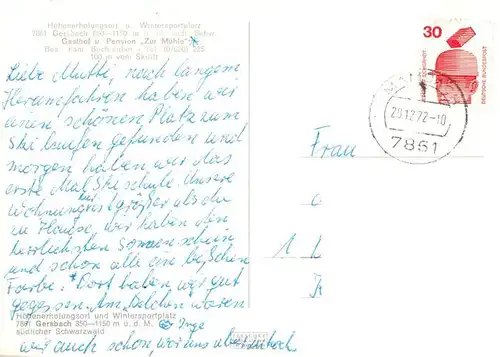 Höhenerholungsort u. Wintersportplatz
7861 Gersbach 850—1150 m ü. d. M. südl. Schw.
Gasthof u. Pension „Zur Mühle" *
Bes. Fam. Buchleither - Tel.
100 m vom Skilift
Liebe Mutti, nach langem
Herumfahren haben wir
einen schönen Platz zum
Skilaufen gefunden und
morgen haben wir das
erste Mal Skischule. Unsere
Wohnung ist größer als du
zu Hause, wir haben den
herrlichsten Sonnenschein
und schon alle ein bißchen
Farbe. * Dort haben wir gut
gegessen. Am Belchen waren
Höhenerholungsort und Wintersportplatz
7861 Gersbach 850—1150 m ü. d. M.
südlicher Schwarzwald
Inge
wir auch schon, wo uns
30
DEUTSCHE BUNDESPOST
29.12.72-10
7861
Frau
1